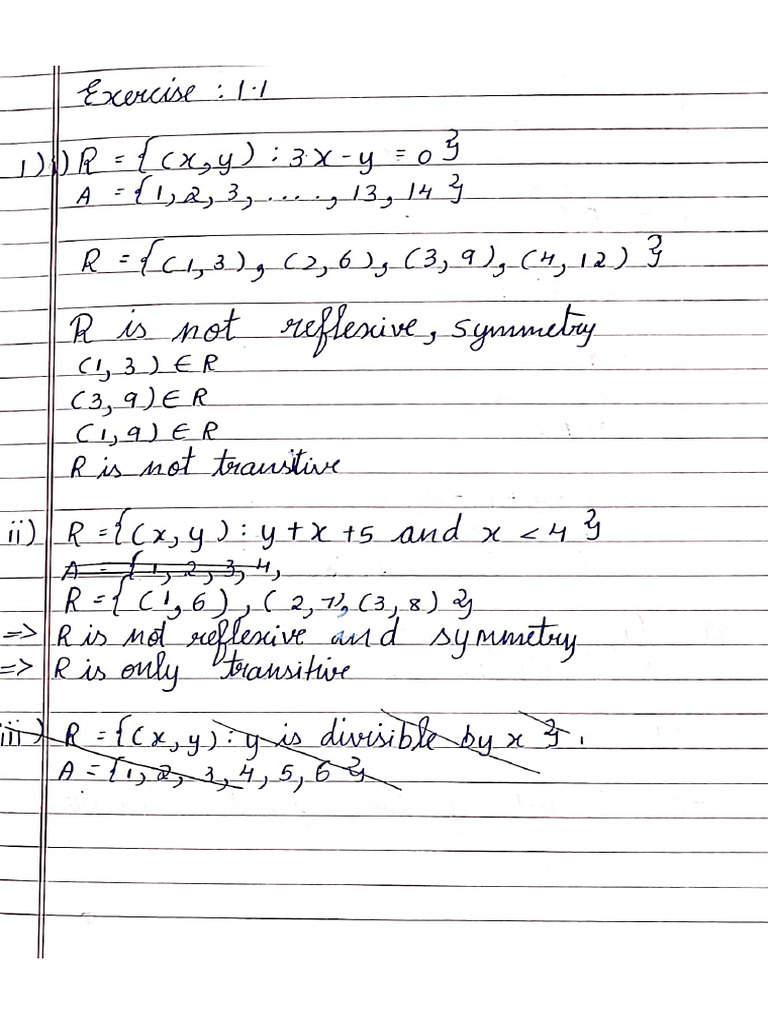 Exercise : 1.1
1) i) R = { (x, y) : 3x - y = 0 }
A = { 1, 2, 3, ...., 13, 14 }
R = { (1, 3), (2, 6), (3, 9), (4, 12) }
R is not reflexive, symmetry
(1, 3) ∈ R
(3, 9) ∈ R
(1, 9) ∈ R
R is not transitive
ii) R = { (x, y) : y + x + 5 and x < 4 }
A = { 1, 2, 3, 4,
R = { (1, 6), (2, 7), (3, 8) }
=> R is not reflexive and symmetry
=> R is only transitive
iii) R = { (x, y) : y is divisible by x } .
A = { 1, 2, 3, 4, 5, 6 }